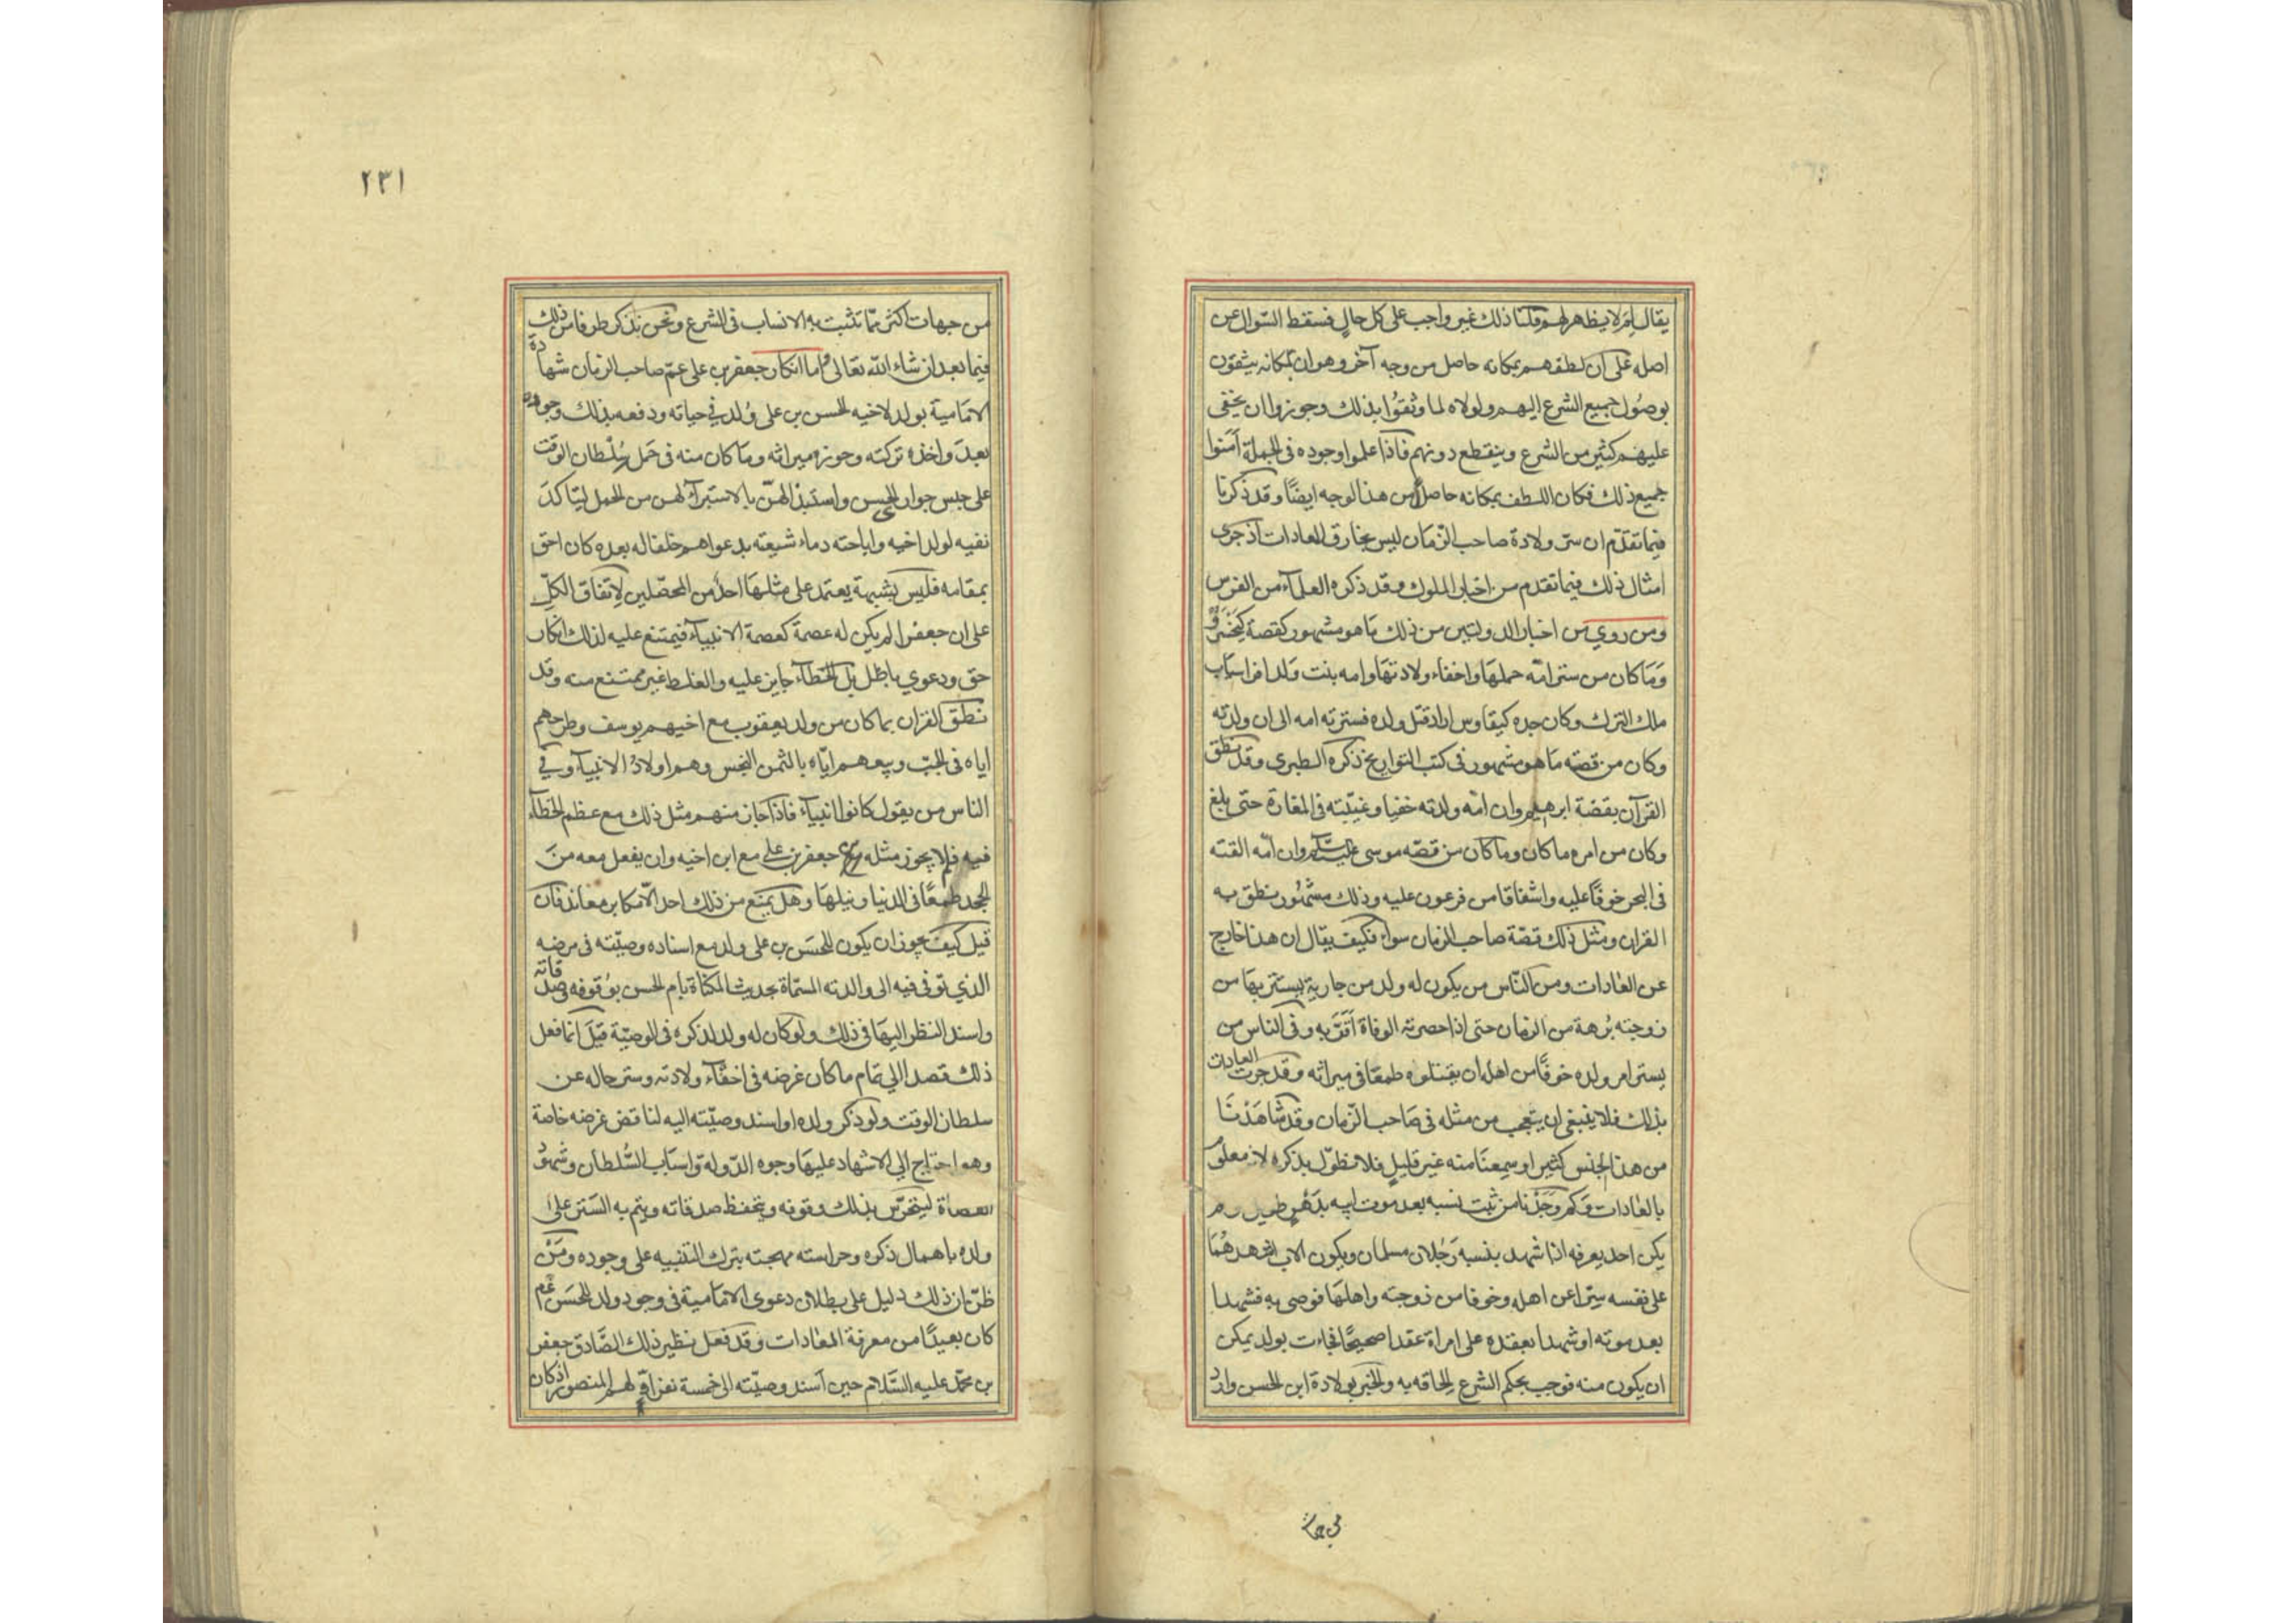 يقال لم لا يظهر لهم قلنا ذلك غير واجب على كل حال فسقط السوال عن
اصله على ان لطفهم بمكانه حاصل من وجه آخر وهو ان بمكانه يثقون
بوصول جميع الشرع اليهم ولولاه لما وثقوا بذلك وجوزوا ان يخفى
عليهم كثير من الشرع وينقطع دونهم فاذا علموا وجوده فى الجملة آمنوا
جميع ذلك فكان اللطف بمكانه حاصلا من هذا لوجه ايضًا وقد ذكرنا
فيما تقدم ان ستر ولادة صاحب الزمان ليس بخارق العادات اذ جرى
امثال ذلك فيما تقدم من اخبار الملوك وقد ذكره العلمآء من الفرس
ومن روي من اخبار الدولتين من ذلك ما هو مشهور كقصة كيخسرو
وما كان من ستر امّه حملها واخفاء ولادتها وامه بنت ولد افراسياب
ملك الترك وكان جده كيقاوس اراد قتل ولده فسترته امه الى ان ولدته
وكان من قصته ما هو مشهور فى كتب التواريخ ذكره الطبرى وقد نطق
القرآن بقصة ابرهيم وان امّه ولدته خفيا وغيّبته فى المغارة حتى بلغ
وكان من امره ما كان وما كان من قصّه موسى عليه السلام وان امّه القته
فى البحر خوفًا عليه واشفاقا من فرعون عليه وذلك مشهور نطق به
القران ومثل ذلك قصّة صاحب الزمان سواء فكيف يقال ان هذا خارج
عن العادات ومن النّاس من يكون له ولد من جارية يستتر بها من
زوجته بُرهة من الزمان حتى اذا حضرته الوفاة اَقَرّ به وفى الناس من
يستر امر ولده خوفًا من اهله ان يقتلوه طمعًا فى ميراثه وقد جرت العادات
بذلك فلا ينبغى ان يتعجب من مثله فى صاحب الزمان وقد شاهدنا
من هذا الجنس كثيرا وسمعنا منه غير قليل فلا نطوّل بذكره لانه معلوم
بالعادات وكم وجدنا من ثبت نسبه بعد موت ابيه بدهرٍ طويل ولم
يكن احد يعرفه اذا شهد بنسبه رجلان مسلمان ويكون الاب اشهدهما
على نفسه سِترًا عن اهله وخوفا من زوجته واهلها فوصى به فشهدا
بعد موته او شهدا بعقده على امراة عقدا صحيحًا فجاءت بولد يمكن
ان يكون منه فوجب بحكم الشرع الحاقه به والخبر بولادة ابن الحسن وارد
من جهات
٢٣١
من جهات اكثر ممّا تثبت به الانساب فى الشرع ونحن نذكر طرفا من ذلك
فيما بعد ان شاء الله تعالى واما انكار جعفر بن على عم صاحب الزمان شهادة
الامامية بولد لاخيه الحسن بن على ولد في حياته ودفعه بذلك وجوده
بعده واخذه تركته وحوزه ميراثه وما كان منه فى حمل سُلْطان الوقت
على حبس جوارى الحسن واستبذالهنّ بالاستبرآء لهن من الحمل ليتاكد
نفيه لولد اخيه واباحته دماء شيعته بدعواهم خلفا له بعده كان احق
بمقامه فليس بشبهة يعتمد على مثلها احد من المحصّلين لاتفاق الكلّ
على ان جعفرا لم يكن له عصمة كعصمة الانبيآء فيمتنع عليه لذلك انكار
حق ودعوي باطل بل الخطآء جايز عليه والغلط غير ممتنع منه وقد
نطق القران بما كان من ولد يعقوب مع اخيهم يوسف وطرحهم
اياه فى الجبّ وبيعهم ايّاه بالثمن البخس وهم اولادُ الانبيآء وفي
الناس من يقول كانوا انبيآء فاذا جاز منهم مثل ذلك مع عظم الخطآء
فيه فلم لا يجوز مثله من جعفر بن على مع ابن اخيه وان يفعل معه من
الجحد طمعًا فى الدنيا ونيلها وهل يمنع من ذلك احد الّا مكابر معاند فان
قيل كيف يجوز ان يكون للحسن بن على ولد مع اسناده وصيّته فى مرضه
الذي توفى فيه الى والدته المسمّاة بحديث المكناة بام الحسن بوقوفه وصدقاته
واسند النظر اليها فى ذلك ولو كان له ولد لذكره فى الوصيّة قيل انما فعل
ذلك قصدا الي تمام ما كان غرضه فى اخفآء ولادته وستر حاله عن
سلطان الوقت ولو ذكر ولده او اسند وصيّته اليه لناقض غرضه خاصة
وهو احتاج الي الاشهاد عليها وجوه الدّولة واسباب السُّلطان وشهود
القضاة ليتحرّس بذلك وقوفه ويتحفظ صدقاته ويتم به السّتر على
ولده باهمال ذكره وحراسته مهجته بترك التنبيه على وجوده ومَنْ
ظنّ ان ذلك دليل على بطلان دعوى الامامية فى وجود ولد للحسن عم
كان بعيدًا من معرفة العادات وقد فعل نظير ذلك الصّادق جعفر
بن محمّد عليه السّلام حين اسند وصيّته الى خمسة نفر اوّلهم المنصور اذ كان